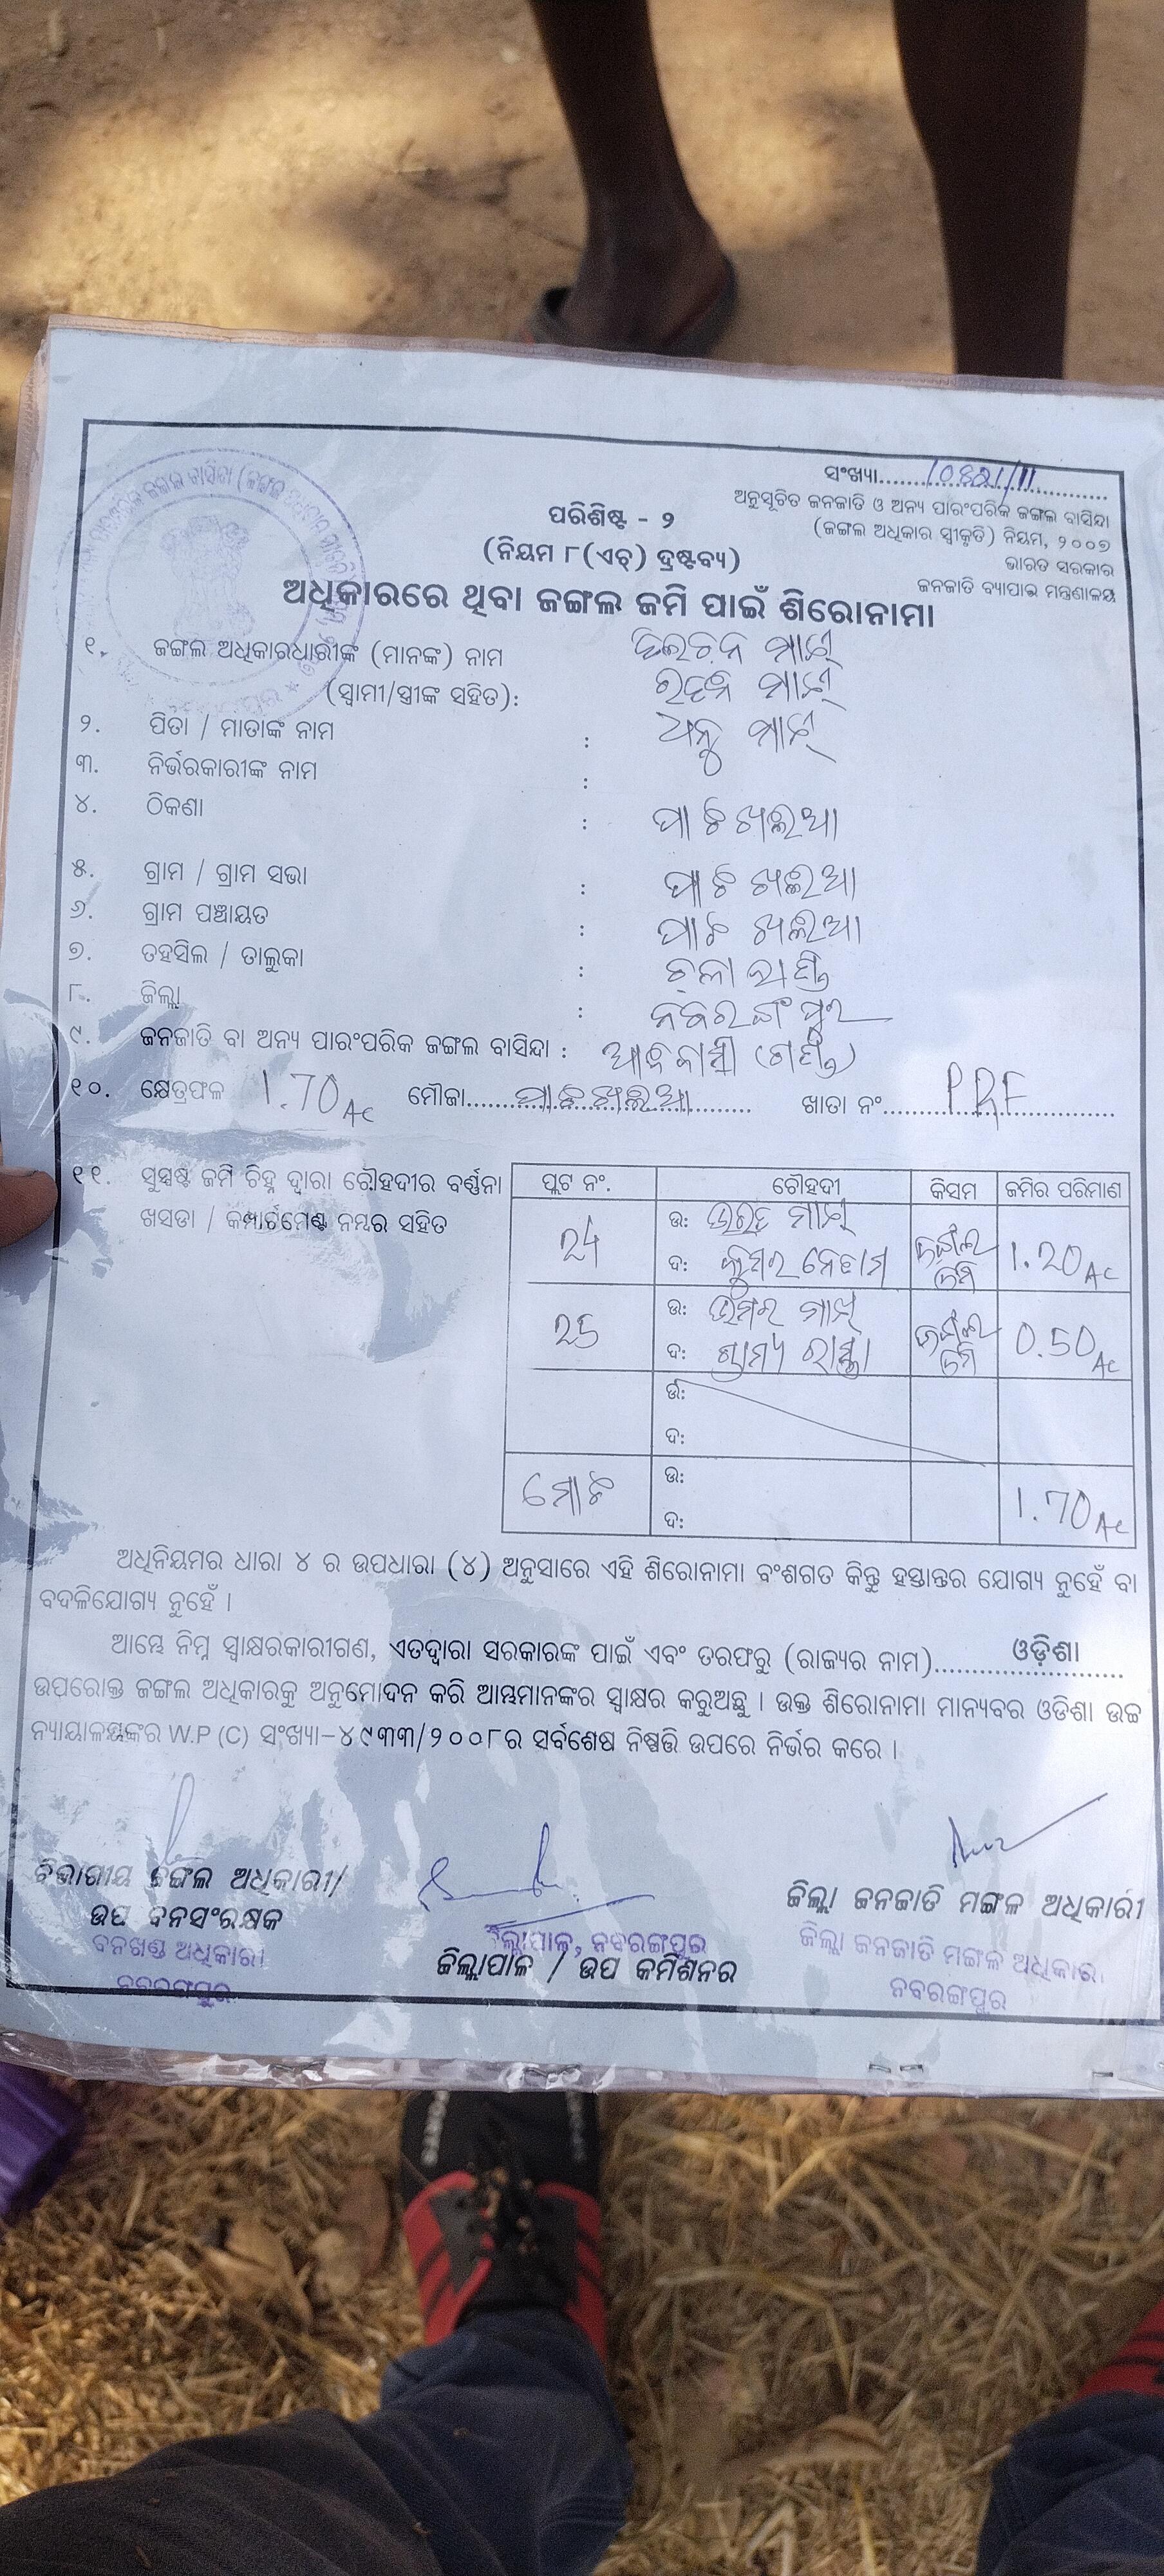 ସଂଖ୍ୟା
ଅନୁସୂଚିତ ଜନଜାତି ଓ ଅନ୍ୟ ପାରଂପରିକ ଜଙ୍ଗଲ ବାସିନ୍ଦା
(ଜଙ୍ଗଲ ଅଧିକାର ସ୍ୱୀକୃତି) ନିୟମ, ୨୦୦୭
ଭାରତ ସରକାର
ଜନଜାତି ବ୍ୟାପାର ମନ୍ତ୍ରଣାଳୟ
ପରିଶିଷ୍ଟ - ୨
(ନିୟମ ୮(ଏଚ୍) ଦ୍ରଷ୍ଟବ୍ୟ)
ଅଧିକାରରେ ଥିବା ଜଙ୍ଗଲ ଜମି ପାଇଁ ଶିରୋନାମା
୧. ଜଙ୍ଗଲ ଅଧିକାରଧାରୀଙ୍କ (ମାନଙ୍କ) ନାମ
(ସ୍ୱାମୀ/ସ୍ତ୍ରୀଙ୍କ ସହିତ):
୨. ପିତା / ମାତାଙ୍କ ନାମ : ଧନୁ ମାଝୀ
୩. ନିର୍ଭରକାରୀଙ୍କ ନାମ :
୪. ଠିକଣା : ପାଟଖଲିଆ
୫. ଗ୍ରାମ / ଗ୍ରାମ ସଭା : ପାଟଖଲିଆ
୬. ଗ୍ରାମ ପଞ୍ଚାୟତ : ପାଟଖଲିଆ
୭. ତହସିଲ / ତାଲୁକା :
୮. ଜିଲ୍ଲା : ନବରଙ୍ଗପୁର
୯. ଜନଜାତି ବା ଅନ୍ୟ ପାରଂପରିକ ଜଙ୍ଗଲ ବାସିନ୍ଦା : ଆଦିବାସୀ (ଗଣ୍ଡ)
୧୦. କ୍ଷେତ୍ରଫଳ 1.70 Ac ମୌଜା ପାଟଖଲିଆ ଖାତା ନଂ PRF
୧୧. ସୁସ୍ପଷ୍ଟ ଜମି ଚିହ୍ନ ଦ୍ୱାରା ଚୌହଦୀର ବର୍ଣ୍ଣନା
ଖସଡା / କମ୍ପାର୍ଟମେଣ୍ଟ ନମ୍ବର ସହିତ
ପ୍ଲଟ ନଂ. ଚୌହଦୀ କିସମ ଜମିର ପରିମାଣ
24 ଉ: ମାଝୀ ଜଙ୍ଗଲ ଜମି 1.20 Ac
ଦ: ନେତାମ
25 ଉ: ମାଝୀ ଜଙ୍ଗଲ ଜମି 0.50 Ac
ଦ: ଗ୍ରାମ୍ୟ ରାସ୍ତା
ଉ:
ଦ:
ମୋଟ ଉ: 1.70 Ac
ଦ:
ଅଧିନିୟମର ଧାରା ୪ ର ଉପଧାରା (୪) ଅନୁସାରେ ଏହି ଶିରୋନାମା ବଂଶଗତ କିନ୍ତୁ ହସ୍ତାନ୍ତର ଯୋଗ୍ୟ ନୁହେଁ ବା
ବଦଳିଯୋଗ୍ୟ ନୁହେଁ ।
ଆମ୍ଭେ ନିମ୍ନ ସ୍ୱାକ୍ଷରକାରୀଗଣ, ଏତଦ୍ୱାରା ସରକାରଙ୍କ ପାଇଁ ଏବଂ ତରଫରୁ (ରାଜ୍ୟର ନାମ) ଓଡ଼ିଶା
ଉପରୋକ୍ତ ଜଙ୍ଗଲ ଅଧିକାରକୁ ଅନୁମୋଦନ କରି ଆମ୍ଭମାନଙ୍କର ସ୍ୱାକ୍ଷର କରୁଅଛୁ । ଉକ୍ତ ଶିରୋନାମା ମାନ୍ୟବର ଓଡିଶା ଉଚ୍ଚ
ନ୍ୟାୟାଳୟଙ୍କର W.P (C) ସଂଖ୍ୟା-୪୯୩୩/୨୦୦୮ର ସର୍ବଶେଷ ନିଷ୍ପତ୍ତି ଉପରେ ନିର୍ଭର କରେ ।
ବିଭାଗୀୟ ଜଙ୍ଗଲ ଅଧିକାରୀ/
ଉପ ବନସଂରକ୍ଷକ
ବନଖଣ୍ଡ ଅଧିକାରୀ
ନବରଙ୍ଗପୁର
ଜିଲ୍ଲାପାଳ, ନବରଙ୍ଗପୁର
ଜିଲ୍ଲାପାଳ / ଉପ କମିଶନର
ଜିଲ୍ଲା ଜନଜାତି ମଙ୍ଗଳ ଅଧିକାରୀ
ଜିଲ୍ଲା ଜନଜାତି ମଙ୍ଗଳ ଅଧିକାରୀ
ନବରଙ୍ଗପୁର